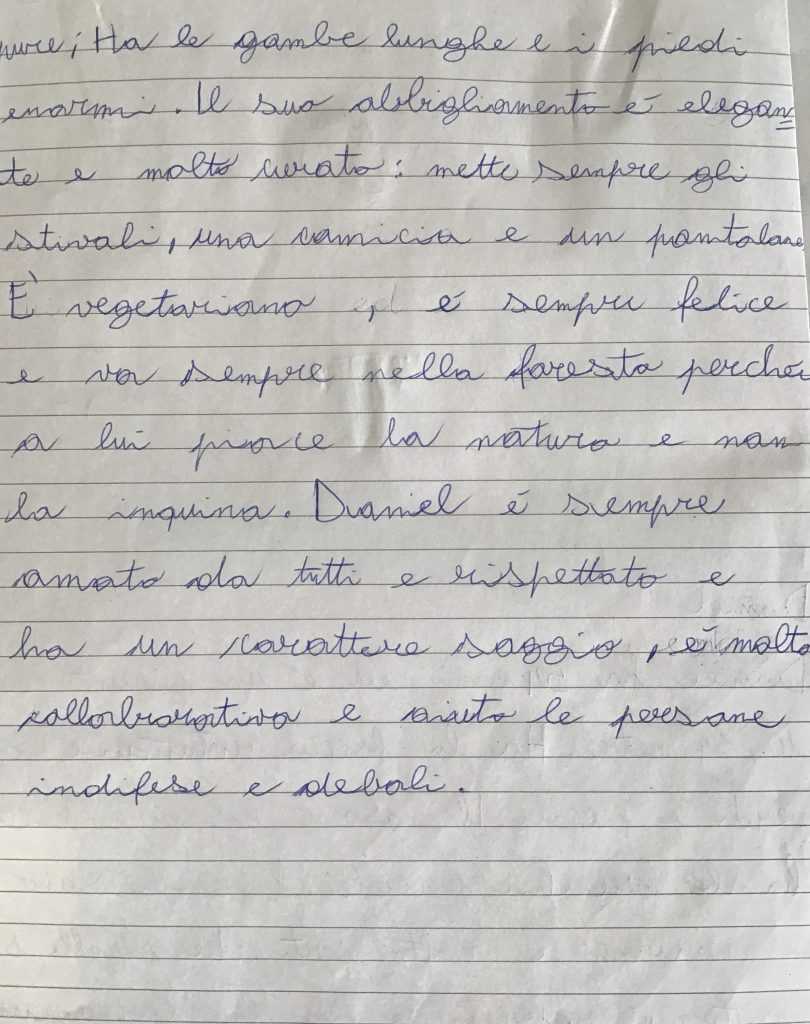 Ha le gambe lunghe e i piedi
enormi. Il suo abbigliamento é elegan
te e molto curato: mette sempre gli
stivali, una camicia e un pantalone
È vegetariano é sempre felice
e va sempre nella foresta perché
a lui piace la natura e non
la inquina. Daniel é sempre
amato da tutti e rispettato e
ha un carattere saggio, é molto
collorborativo e aiuta le persone
indifese e deboli.